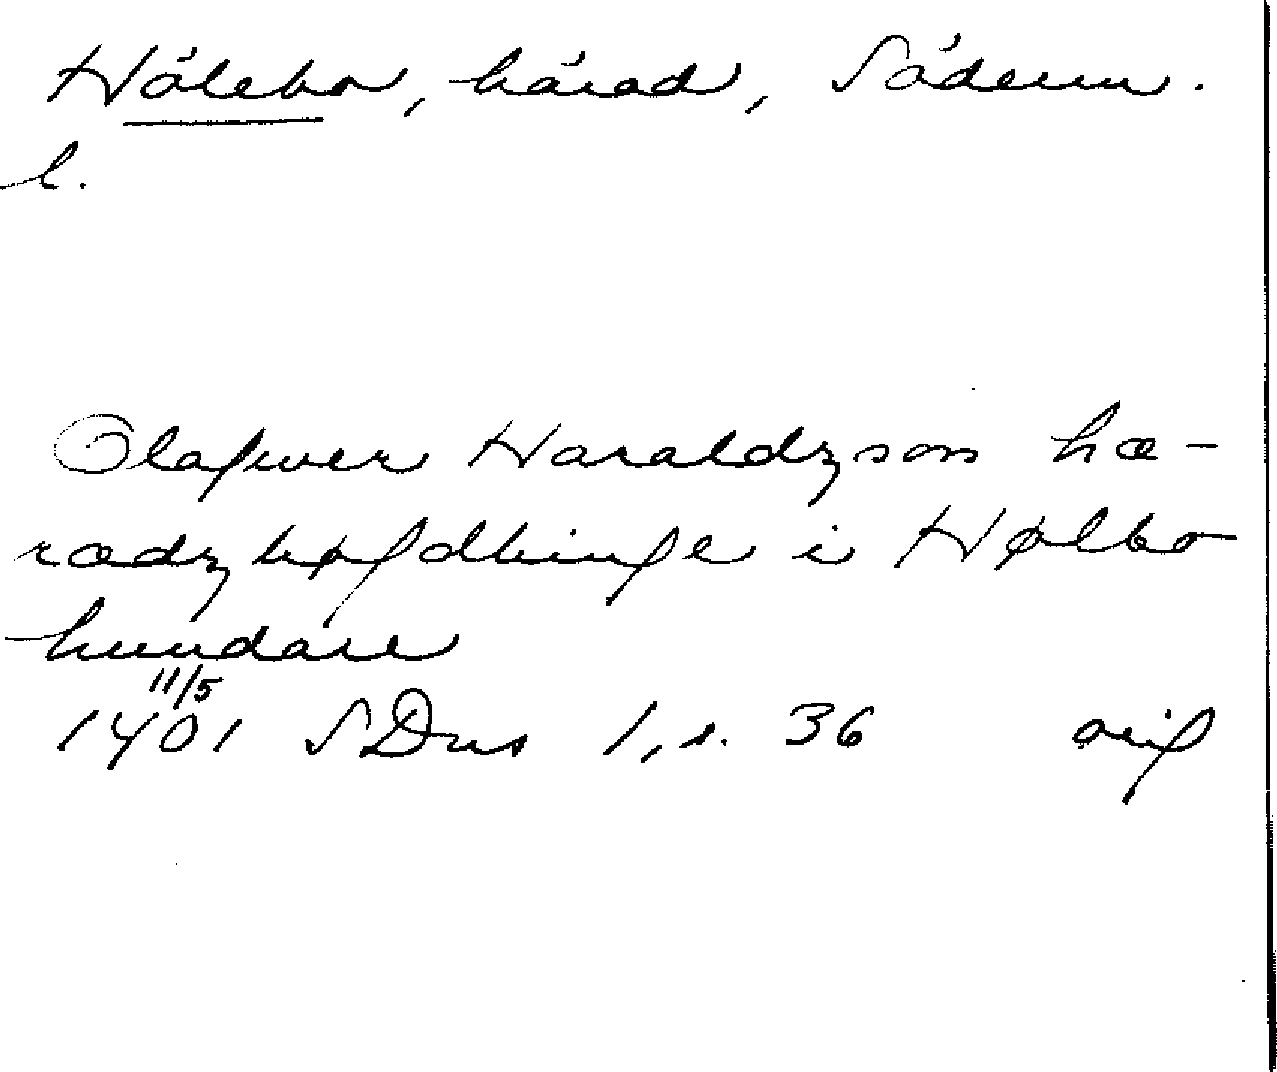 Hölebo, härad, Söderm.
l.
Olafwer Haraldzson hæ-
rædzhøfdhinge i Hølbo
hundare
11/5
1401 SDns 1, s. 36 orig